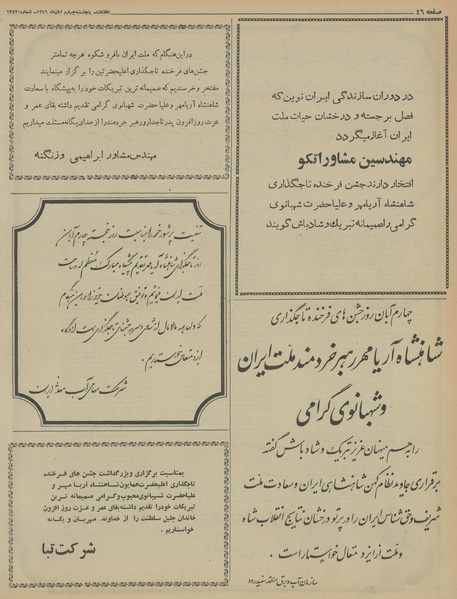 صفحه ٤٦
اطلاعات ـ پنجشنبه چهارم آبان ماه ١٣٤٦ ـ شماره
در دوران سازندگی ایران نوین که
فصل برجسته و درخشان حیات ملت
ایران آغاز میگردد
مهندسین مشاور انکو
افتخار دارند جشن فرخنده تاجگذاری
شاهنشاه آریامهر و علیاحضرت شهبانوی
گرامی را صمیمانه تبریک و شادباش گویند
چهارم آبان روز جشن های فرخنده تاجگذاری
شاهنشاه آریامهر رهبر خردمند ملت ایران
و شهبانوی گرامی
را به هم میهنان عزیز تبریک و شادباش گفته
برقراری جاوید نظام کهن شاهنشاهی ایران و سعادت ملت
شریف و حق شناس ایران را در پرتو درخشان نتایج انقلاب شاه
و ملت از ایزد متعال خواستار است .
سازمان آب و برق منطقه سفیدرود
در این هنگام که ملت ایران با فر و شکوه هرچه تمامتر
جشن‌های فرخنده تاجگذاری اعلیحضرتین را برگزار مینمایند
مفتخر و خرسندیم که صمیمانه ترین تبریکات خود را به پیشگاه با سعادت
شاهنشاه آریامهر و علیا حضرت شهبانوی گرامی تقدیم داشته بقای عمر و
عزت روزافزون پدر تاجدار و رهبر خردمند را از خدای یگانه مسئلت میداریم
مهندس مشاور ابراهیمی و زنگنه
تهنیت پرشور خود را بمناسبت روز خجسته چهارم آبان
روز تاجگذاری شاهنشاه آریامهر تقدیم پیشگاه مبارک معظم له و
ملت ایران
ایزد متعال خواستاریم .
شرکت سهامی آب معدنی ایران
بمناسبت برگزاری و بزرگداشت جشن های فرخنده
تاجگذاری اعلیحضرت همایون شاهنشاه آریا مهر و
علیاحضرت شهبانوی محبوب و گرامی صمیمانه ترین
تبریکات خود را تقدیم داشته بقای عمر و عزت روز افزون
خاندان جلیل سلطنت را از خداوند مهربان و یگانه
خواستاریم .
شرکت تبا